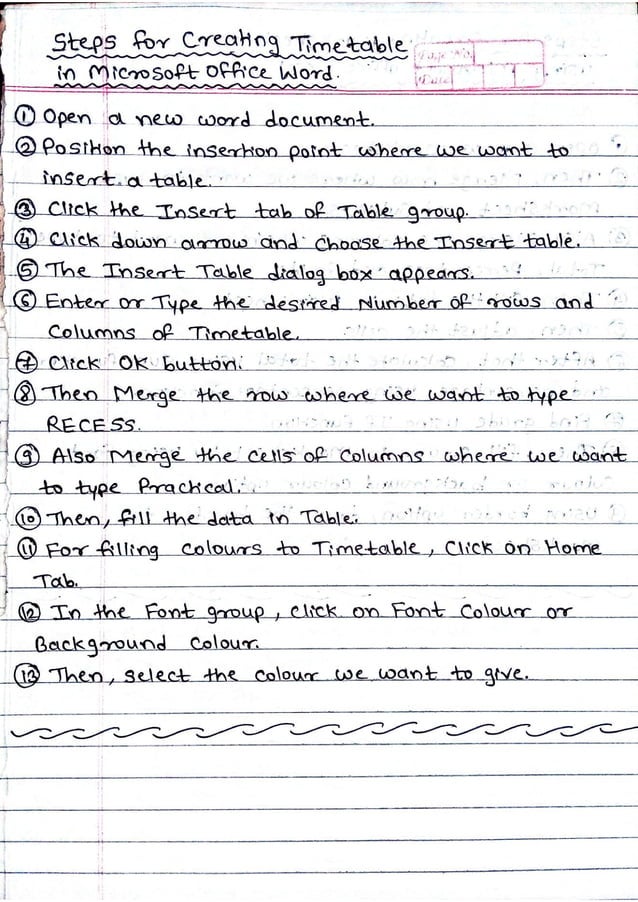 Steps for Creating Timetable
in Microsoft Office Word.
Page No.
Date
① Open a new word document.
② Position the insertion point where we want to
insert a table.
③ Click the Insert tab of Table group.
④ Click down arrow and choose the Insert table.
⑤ The Insert Table dialog box appears.
⑥ Enter or Type the desired Number of rows and
Columns of Timetable.
⑦ Click OK button.
⑧ Then Merge the row where we want to type
RECESS.
⑨ Also Merge the cells of columns where we want
to type Practical.
⑩ Then, fill the data in Table.
⑪ For filling colours to Timetable, Click on Home
Tab.
⑫ In the Font group, click on Font Colour or
Background colour.
⑬ Then, select the colour we want to give.